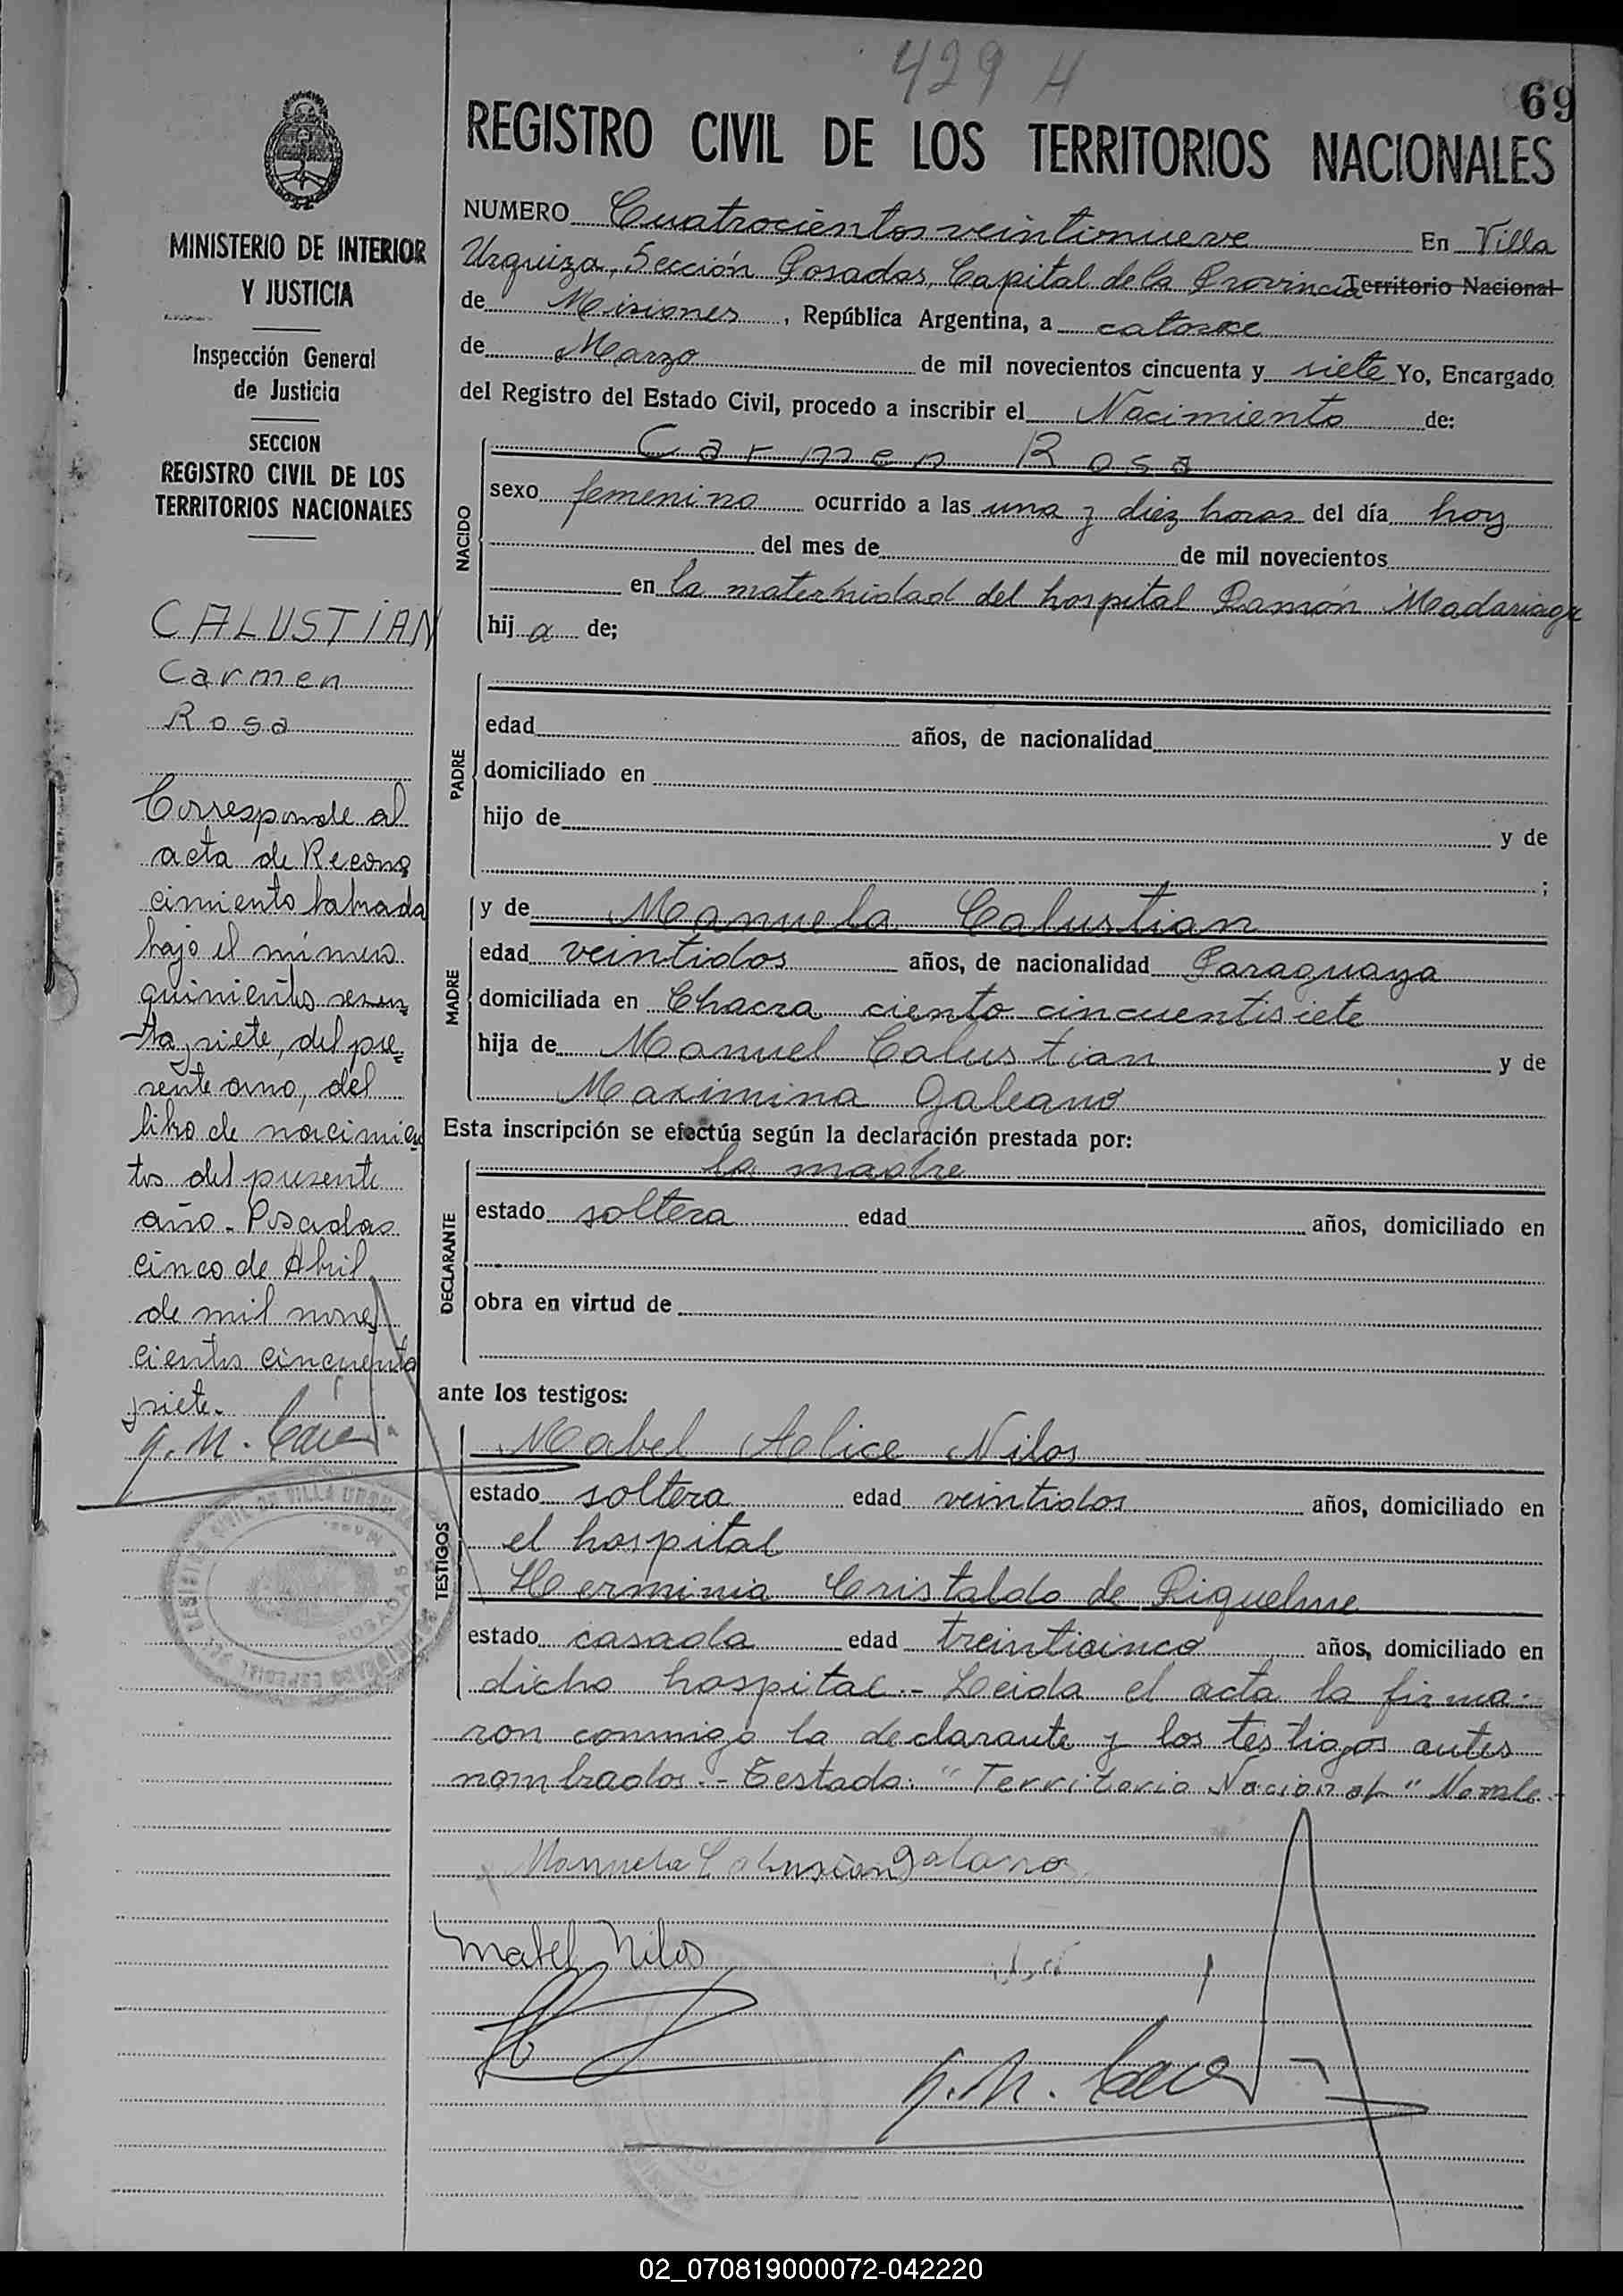 429 H
69
REGISTRO CIVIL DE LOS TERRITORIOS NACIONALES
NUMERO Cuatrocientos veintinueve En Villa
Urquiza, Sección Posadas, Capital de la Provincia Territorio Nacional
de Misiones, República Argentina, a catorce
de Marzo de mil novecientos cincuenta y siete Yo, Encargado
del Registro del Estado Civil, procedo a inscribir el Nacimiento de:
NACIDO
Carmen Rosa
sexo femenino ocurrido a las una y diez horas del día hoy
del mes de de mil novecientos
en la maternidad del hospital Ramón Madariaga
hij a de;
PADRE
edad años, de nacionalidad
domiciliado en
hijo de y de
;
MADRE
y de Manuela Calustian
edad veintidos años, de nacionalidad Paraguaya
domiciliada en Chacra ciento cincuentisiete
hija de Manuel Calustian y de
Maximina Galeano
Esta inscripción se efectúa según la declaración prestada por:
DECLARANTE
la madre
estado soltera edad años, domiciliado en
obra en virtud de
ante los testigos:
TESTIGOS
Mabel Alice Nilos
estado soltera edad veintidos años, domiciliado en
el hospital
Herminia Cristaldo de Riquelme
estado casada edad treinticinco años, domiciliado en
dicho hospital.- Leida el acta la firma-
ron conmigo la declarante y los testigos antes
nombrados.- Testado: "Territorio Nacional" No vale.-
Manuela Calustian galano
Mabel Nilos
MINISTERIO DE INTERIOR
Y JUSTICIA
Inspección General
de Justicia
SECCION
REGISTRO CIVIL DE LOS
TERRITORIOS NACIONALES
CALUSTIAN
Carmen
Rosa
Corresponde al
acta de Recono
cimiento labrada
bajo el número
quinientos sesen
ta y siete, del pre-
sente año, del
libro de nacimien
tos del presente
año - Posadas
cinco de Abril
de mil nove
cientos cincuenta
y siete.
02_070819000072-042220